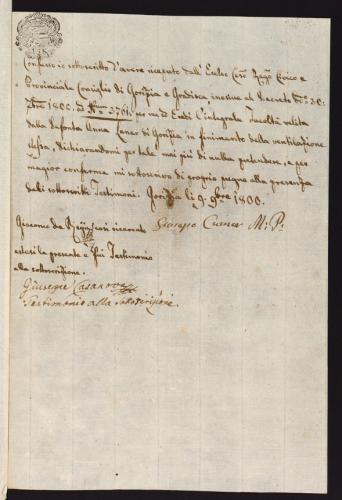 Confesso io sottoscritto d'avere ricevuto dall' Eccelso Ces: Reggio Civico e
Provinciale Consiglio di Gorizia e Gradisca, inerim al Decreto
1800. ad Num: 3761. per via di Eredi l'integrale Facoltà relita
dalla defonta Anna di Gorizia in finimento della ventilazione
stessa, dichiarandomi per tale mai più di nulla pretendere, e per
magior conferma mi sottoscrivo di proprio pugno alla presenza
deli sottoscritti Testimonj. Gorizia li 9. 9bre 1800.
Giacomo da ricercato
estesi la presente e fui Testimonio
alla sottoscrizione.
M: P:
Giuseppe Casanova
Testimonio alla sottoscrizione.